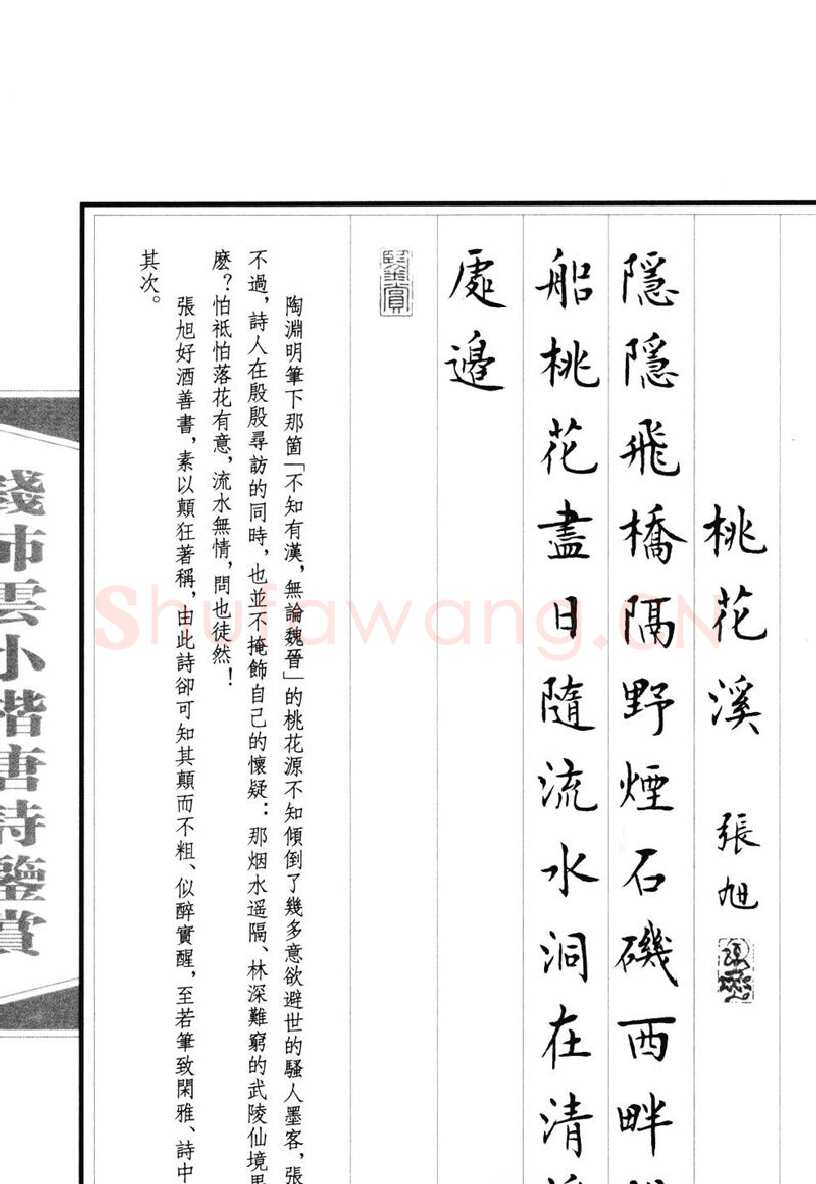 桃花溪 張旭
隱隱飛橋隔野煙石磯西畔
船桃花盡日隨流水洞在清
處邊
陶淵明筆下那箇「不知有漢,無論魏晉」的桃花源不知傾倒了幾多意欲避世的騷人墨客,張
不過,詩人在殷殷尋訪的同時,也並不掩飾自己的懷疑:那烟水遥隔、林深難窮的武陵仙境
麽?怕祗怕落花有意,流水無情,問也徒然!
張旭好酒善書,素以顛狂著稱,由此詩卻可知其顛而不粗、似醉實醒,至若筆致閑雅、詩中
其次。
錢沛雲小楷唐詩鑒賞
Shufawang.CN